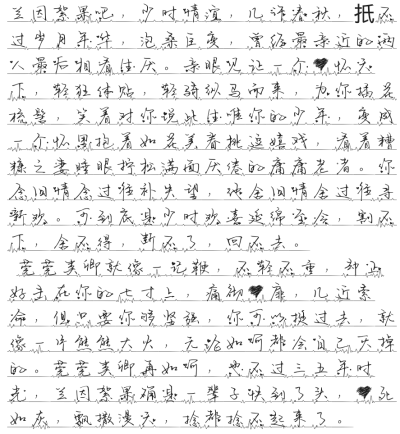 兰因絮果吧，少时情谊，几许春秋，抵不
过岁月年华，沧桑巨变，曾经最亲近的两
人最后相看生厌。亲眼见证一个❤怀天
下，轻狂体贴，轻骑纵马而来，为你描花
梳髻，笑着对你说此生唯你的少年，变成
一个怀里抱着如花美眷挑逗嬉戏，看着糟
糠之妻睡眼惺忪满面厌倦的庸庸老者。你
念旧情念过往补失望，他会旧情会过往寻
新欢。可到底是少时欢喜延绵至今，割不
下，舍不得，断不了，回不去。
莞莞类卿就像一记鞭，不轻不重，却正
好击在你的七寸上，痛彻❤扉，几近索
命，但只要你够坚强，你可以挺过去，就
像一片熊熊大火，无论如何都会自己灭掉
的。莞莞类卿再如何，也不过三五年时
光，兰因絮果确是一辈子快到了头，❤死
如灰，飘撒漫天，捡都捡不起来了。